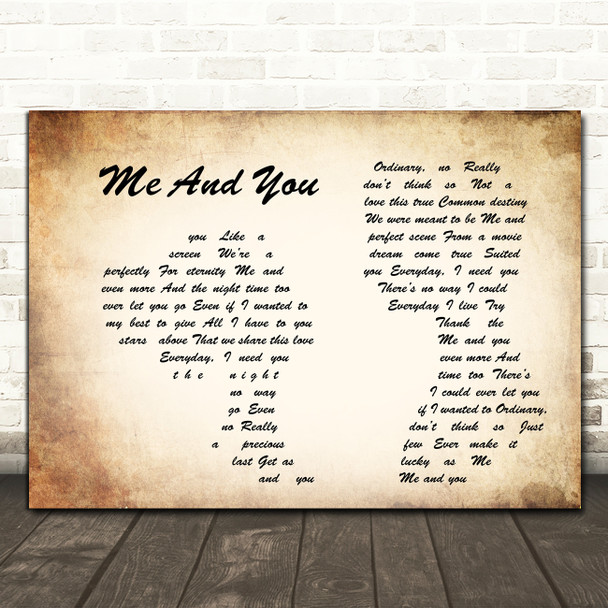 Me And You
you Like a
screen We're a
perfectly For eternity Me and
even more And the night time too
ever let you go Even if I wanted to
my best to give All I have to you
stars above That we share this love
Everyday, I need you
the night
no way
go Even
no Really
a precious
last Get as
and you
Ordinary, no Really
don't think so Not a
love this true Common destiny
We were meant to be Me and
perfect scene From a movie
dream come true Suited
you Everyday, I need you
There's no way I could
Everyday I live Try
Thank the
Me and you
even more And
time too There's
I could ever let you
if I wanted to Ordinary,
don't think so Just
few Ever make it
lucky as Me
Me and you